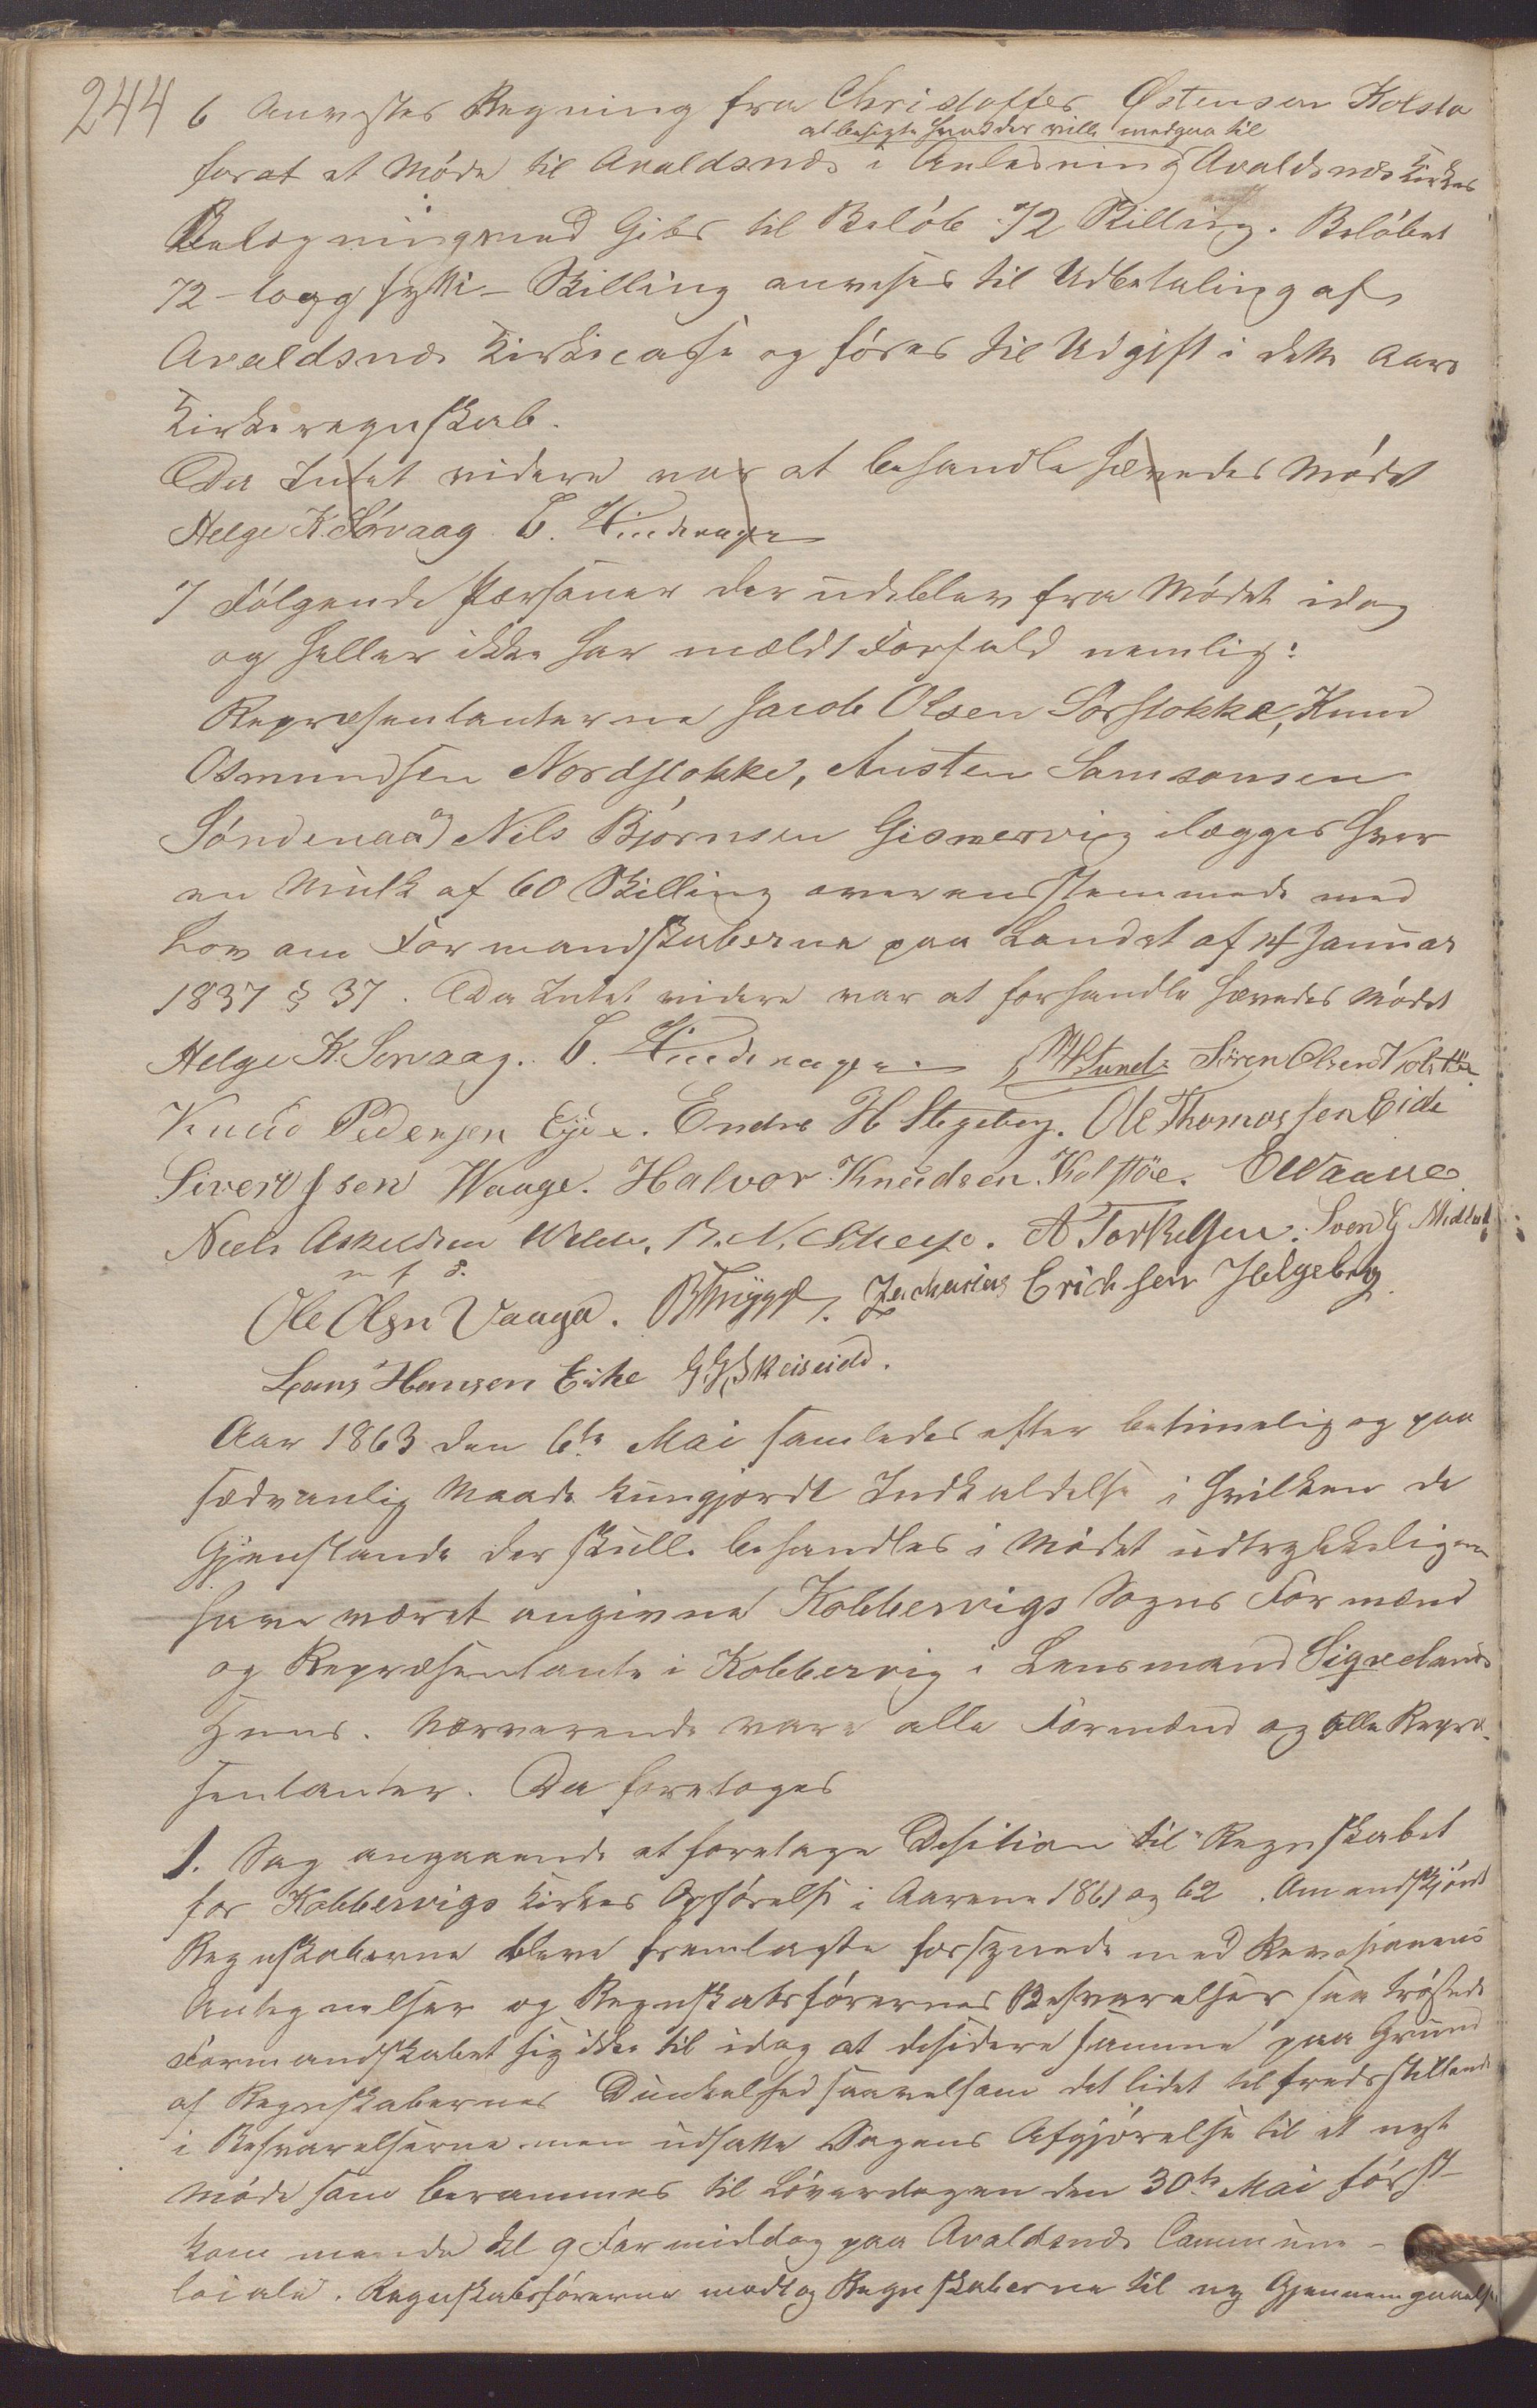 244
6 Anvistes Regning fra Christoffer Østensen Kolstø
at besigte hvad der ville medgaa til
for at et Møde til Avaldsnæs i Anledning Avaldsnæs Kirkes
Belægning med Gibs til Beløb 72 Skilling. Beløbet
72 – toog sytti – Skilling anvises til Udbetaling af
Avaldsnæs Kirkecasse og føres til Udgift i dette Aars
Kirkeregnskab.
Da Intet videre var at behandle hævedes Mødet
Helge K. Sørvaag. C.
7 Følgende Personer der udeblev fra Mødet idag
og heller ikke har meldt Forfald nemlig:
Repræsentanterne Jacob Olsen Sørstokke, Knud
Osmundsen Nordstokke, Austen Samsonsen
Søndenaa og Nils Bjørnsen Gismervig ilægges hver
en Mulk af 60 Skilling overensstemmede med
Lov om Formandskaberne paa Landet af 14 Januar
1837 § 37. Da Intet videre var at forhandle hævedes Mødet
Helge K. Sørvaag. C. Lund. Søren Olsen Kolstøe.
Knud Pedersen Eide. Endre H Stegeberg. Ole Thomassen Eide
Sivert Jsen Waage. Halvor Knudsen Kolstøe. E Waave
Niels Askildsen Welde. B. N. Skeye. A Torkelsen. Svend G Midtun
m f P.
Ole Olsn Vaaga. B Trygge. Zacharias Erichsen Helgeberg.
Lars Hansen Eike G. G. Skeiseid.
Aar 1863 den 6te Mai samledes efter betimelig og paa
sædvanlig Maade kungjordt Indkaldelse i hvilken de
Gjenstande der skulle behandles i Mødet udtrykkeligen
have været angivne Kobbervigs Sogns Formænd
og Repræsentante i Kobbervig i Lensmand Sigvelands
Huus. Nærværende vare alle Formænd og alle Repræ-
sentanter. Da foretoges
1. Sag angaaende at foretage Desition til Regnskabet
for Kobbervigs Kirkes Opførelse i Aarene 1861 og 62. Omendskjøndt
Regnskaberne bleve fremlagte forsynede med Revisionens
Antegnelser og Regnskabsførernes Besvarelser saa trøstede
Formandskabet sig ikke til idag at desidere samme paa Grund
af Regnskabernes Dunkelhed saavelsom det lidet tilfredsstillende
i Besvarelserne men udsatte Sagens Afgjørelse til et nyt
Møde som berammes til Løverdagen den 30te Mai først-
kommende Kl 9 Formiddag paa Avaldsnæs Commune-
locale. Regnskabsførerne modtog Regnskaberne til ny Gjennemgaaelse